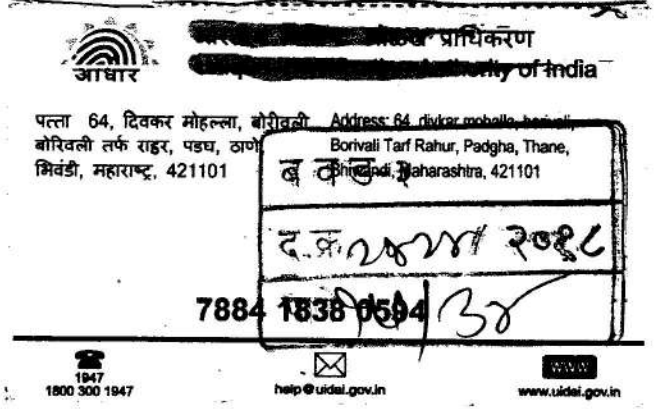 आधार
प्राधिकरण
of India
पत्ता 64, दिवकर मोहल्ला, बोरीवली
बोरिवली तर्फ राहुर, पडघ, ठाणे
भिवंडी, महाराष्ट्र, 421101
Address: 64, divkar mohalla, borivali,
Borivali Tarf Rahur, Padgha, Thane,
Bhiwandi, Maharashtra, 421101
ब व ड
द.क्र. २०१८
7884 1838 0594
1947
1800 300 1947
help@uidai.gov.in
www
www.uidai.gov.in